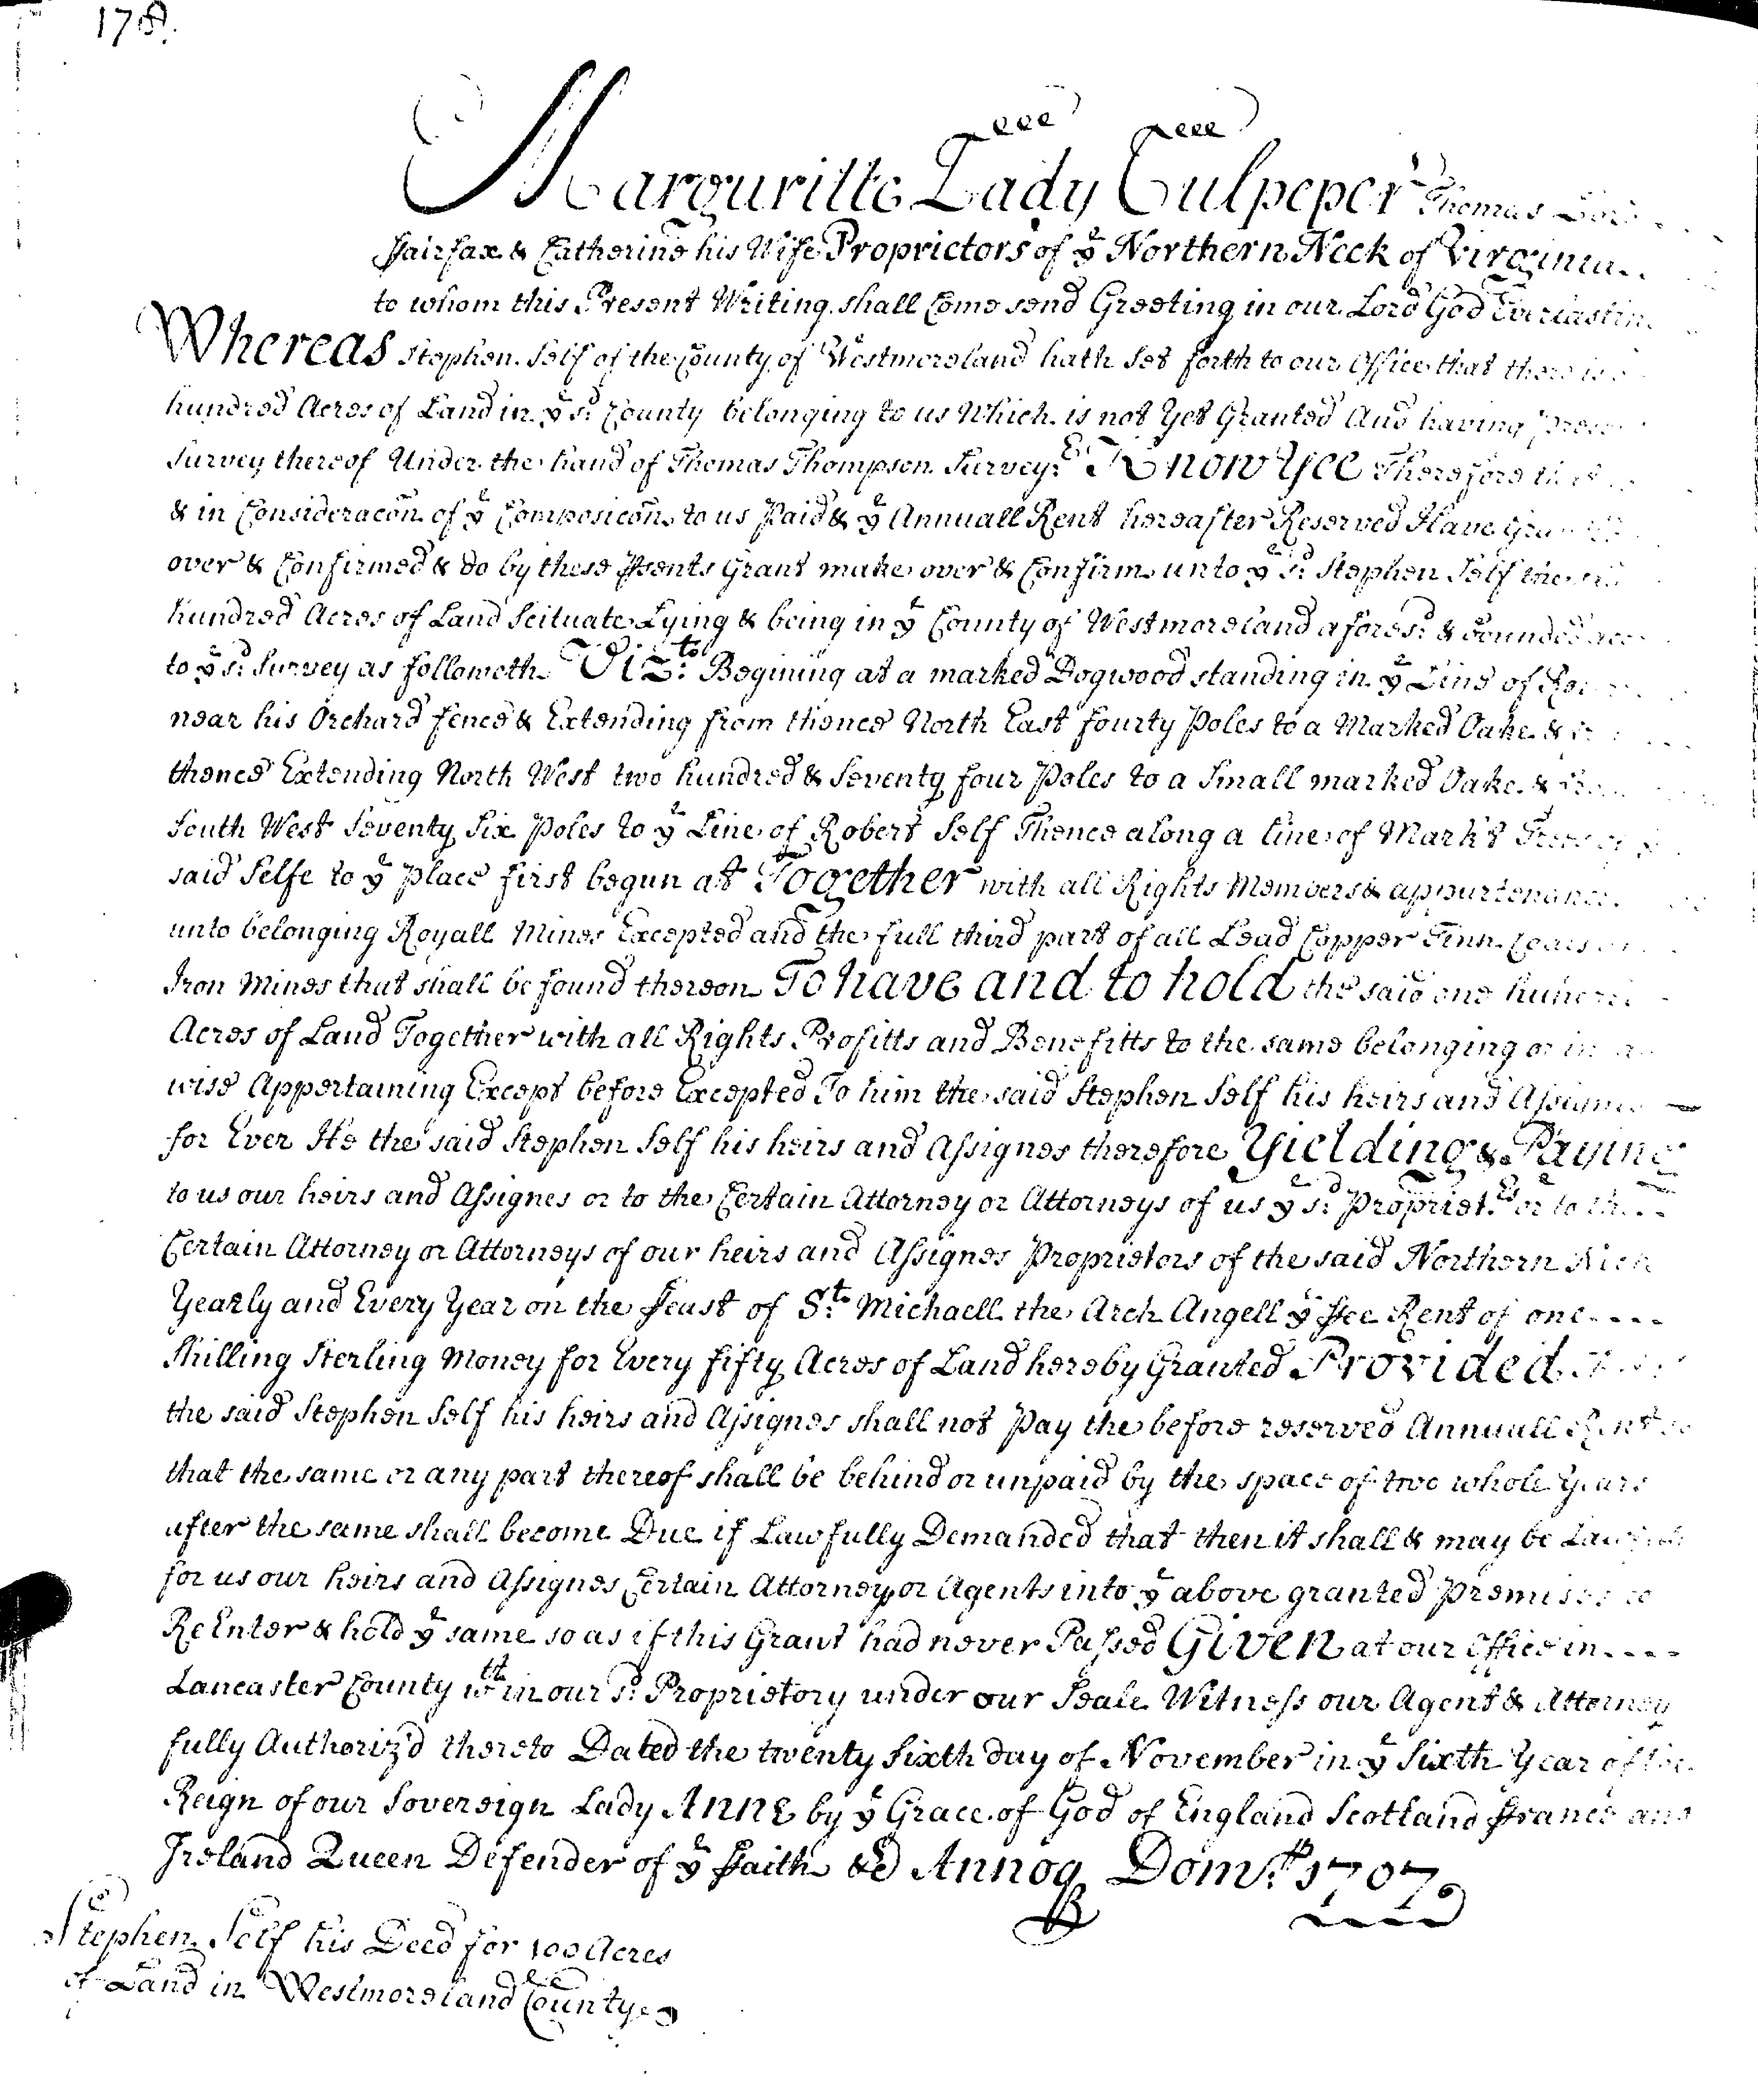 178.
Marguritte Lady Culpeper Thomas Lord
Fairfax & Catherine his Wife Proprietors of ye Northern Neck of Virginia
to whom this Present Writing shall Come send Greeting in our Lord God Everlasting
Whereas Stephen Self of the County of Westmoreland hath Set forth to our Office that there is
hundred Acres of Land in ye sd. County belonging to us Which is not Yet Granted And having
Survey thereof Under the hand of Thomas Thompson Surveyr. Know Yee Therefore that
& in Consideracon of ye Composicon to us Paid & ye Annuall Rent hereafter Reserved Have
over & Confirmed & do by these Psents Grant make over & Confirm unto ye sd. Stephen Self the
hundred Acres of Land Scituate Lying & being in ye County of Westmoreland aforesd. & bounded
to ye sd. Survey as followeth Vizt. Begining at a marked Dogwood standing in ye Line of
near his Orchard fence & Extending from thence North East fourty Poles to a Marked Oake &
thence Extending North West two hundred & Seventy four Poles to a Small marked Oake &
South West Seventy Six Poles to ye Line of Robert Self Thence along a line of Markt Trees
said Selfe to ye Place first begun at Together with all Rights Members & appurtenances
unto belonging Royall Mines Excepted and the full third part of all Lead Copper Tinn Coals
Iron Mines that shall be found thereon To have and to hold the said one hundred
Acres of Land Together with all Rights Profitts and Benefitts to the same belonging or in
wise Appertaining Except before Excepted To him the said Stephen Self his heirs and Assignes
for Ever He the said Stephen Self his heirs and Assignes therefore Yielding & Paying
to us our heirs and Assignes or to the Certain Attorney or Attorneys of us ye sd. Propriet.rs or to the
Certain Attorney or Attorneys of our heirs and Assignes Proprietors of the said Northern Neck
Yearly and Every Year on the feast of St. Michaell the Arch Angell ye ffee Rent of one
Shilling Sterling Money for Every fifty Acres of Land hereby Granted Provided
the said Stephen Self his heirs and Assignes shall not Pay the before reserved Annuall Rent
that the same or any part thereof shall be behind or unpaid by the space of two whole Years
after the same shall become Due if Lawfully Demanded that then it shall & may be Lawfull
for us our heirs and Assignes Certain Attorney or Agents into ye above granted Premises to
ReEnter & hold ye same so as if this Grant had never Passed Given at our Office in
Lancaster County wthin our sd. Proprietory under our Seale Witness our Agent & Attorney
fully Authoriz'd thereto Dated the twenty Sixth day of November in ye Sixth Year of the
Reign of our Sovereign Lady Anne by ye Grace of God of England Scotland ffrance and
Ireland Queen Defender of ye ffaith &c Annoq Dom. 1707
Stephen Self his Deed for 100 Acres
of Land in Westmoreland County